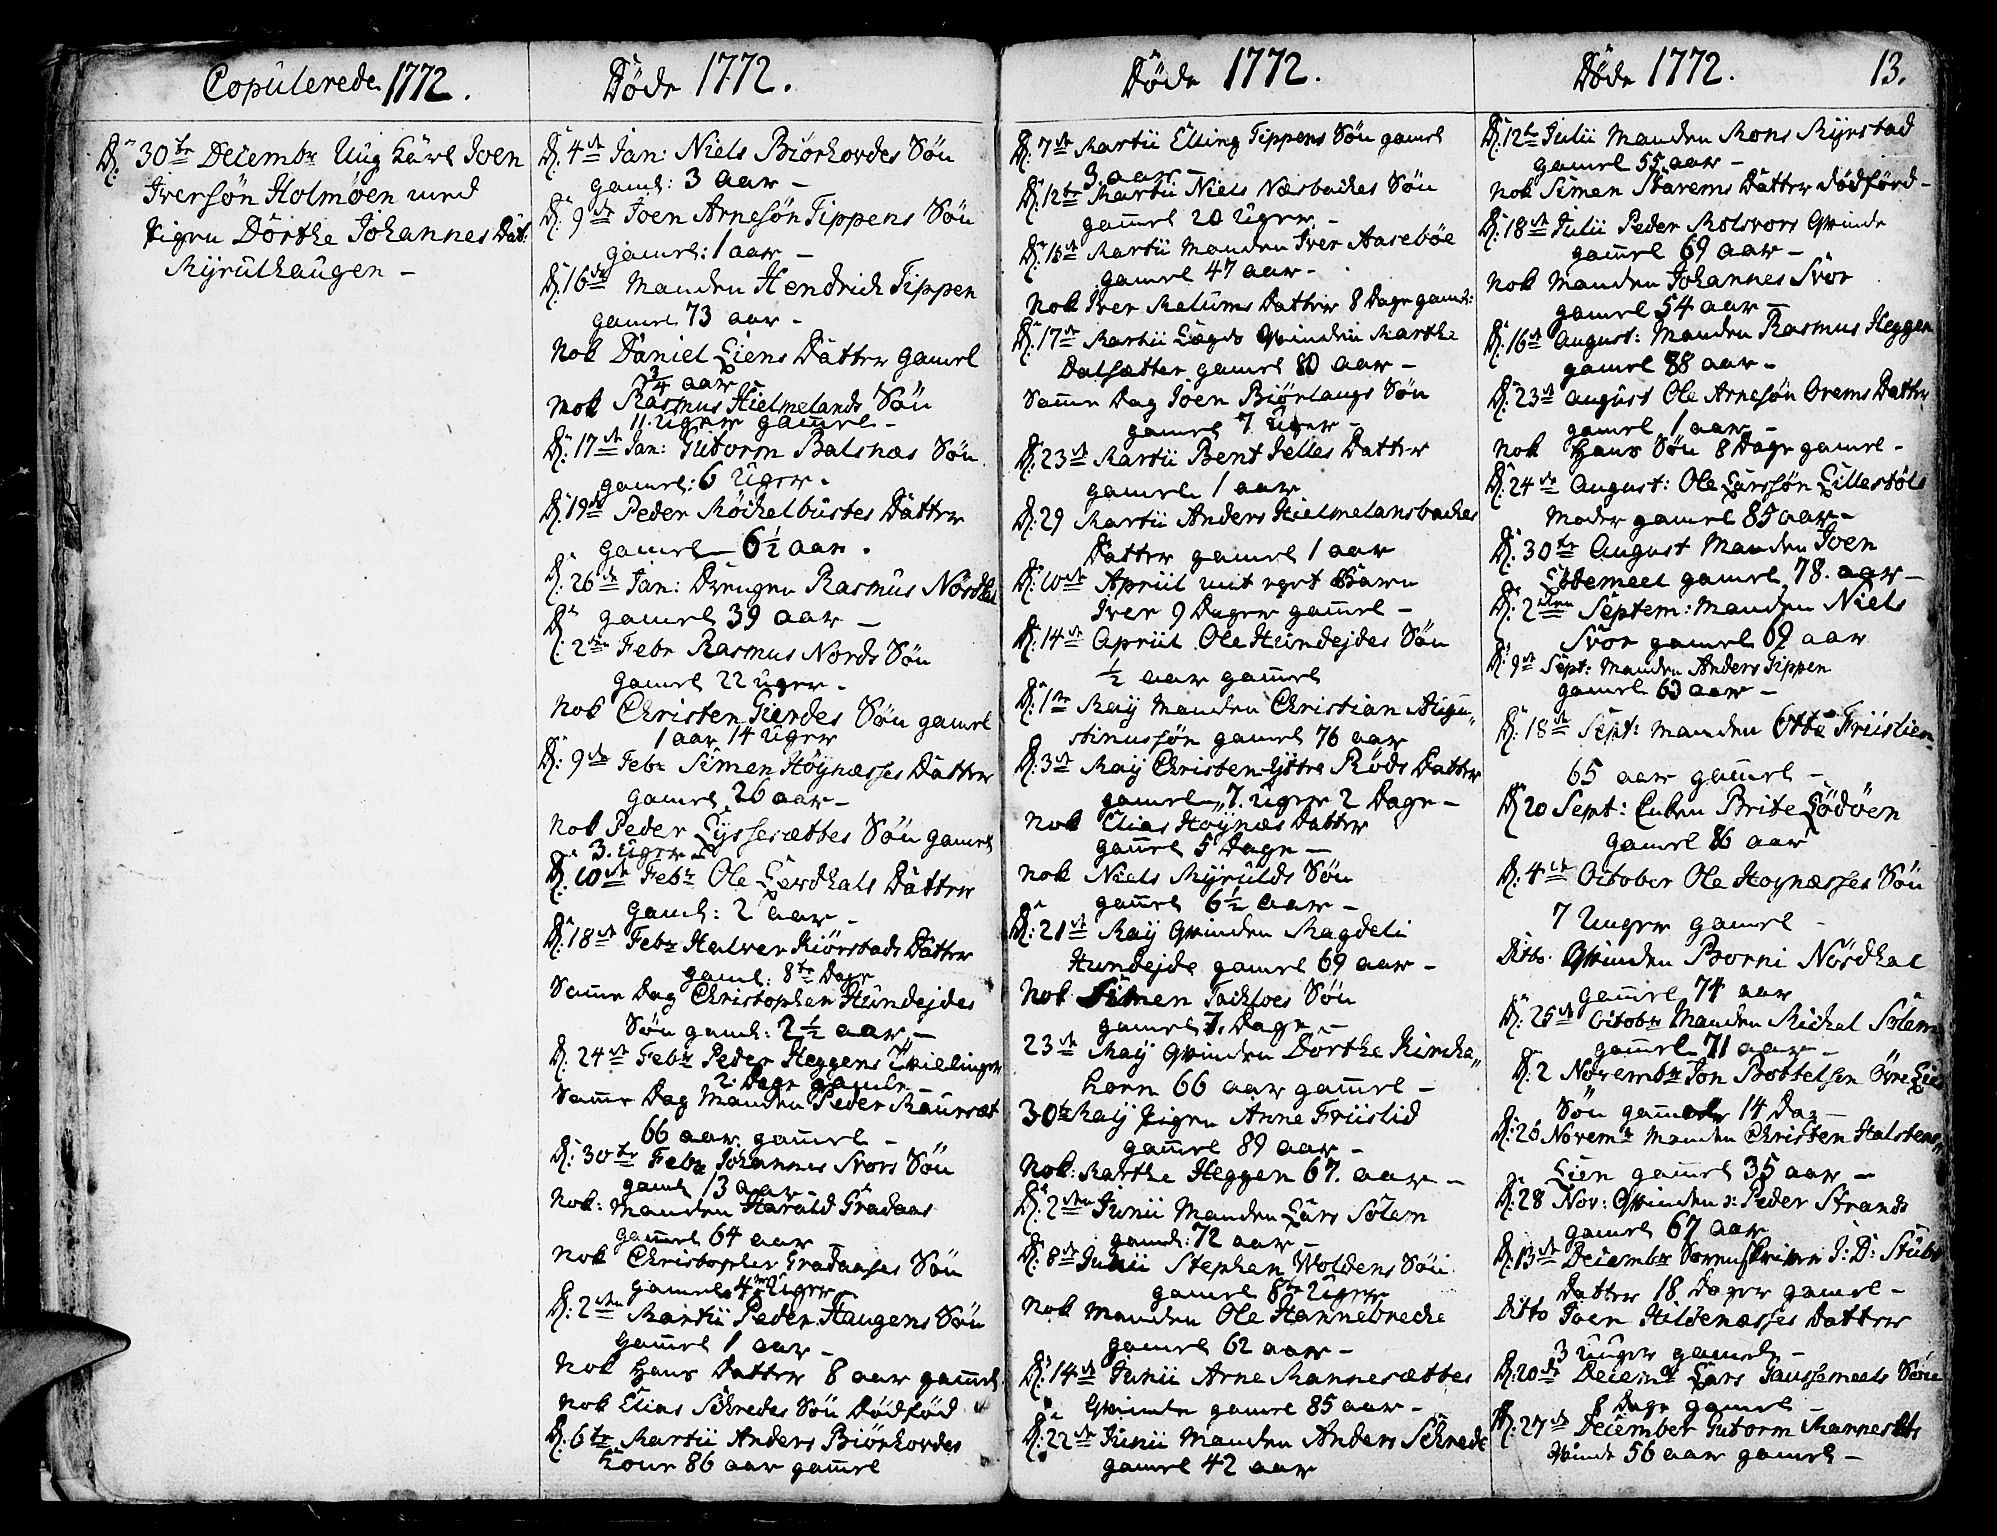 Copulerede 1772.
D: 30te Decembr Ung Karl Joen
Iversøn Holmøen med
Pigen Dorthe Johannes Dat:
Myrulhaugen –
Døde 1772.
D: 4de Jan: Niels Biørhovdes Søn
gaml: 3 aar –
D: 9de Joen Arnesøn Tippens Søn
gamel: 1 aar –
D: 16de Manden Hendrich Tippen
gamel 73 aar –
Nok Daniel Liens Datter gamel
3/4 aar
Nok Rasmus Hielmelands Søn
11. Uger gammel –
D: 17de Jan: Gutorm Balsnæs Søn
gamel: 6 Uger.
D: 19de Peder Møckelbustes Datter
gamel – 6 1/2 aar.
D: 26de Jan: Drengen Rasmus Nordhal
gamel 39 aar –
D: 2den Febr Rasmus Nords Søn
gamel 22 uger –
Nok Christen Gierdes Søn gamel
1 aar 14 Uger
D: 9de Febr Simen Høynæsses Datter
gamel 26 aar –
Nok Peder Lyssesættes Søn gamel
3. Uger –
D: 10de Febr Ole Lerdhals Datter
gaml: 2 aar –
D: 18de Febr Halver Kiørstads Datter
gaml: 8te Dage
Samme Dag Christopher Hundejdes
Søn gaml: 2 1/2 aar –
D: 24de Febr Peder Heggens Tvillinger
2 Dage gamle –
Samme Dag Manden Peder Maursæt
66 aar gammel –
D: 30te Febr Johannes Svors Søn
gaml 13 aar –
Nok: Manden Harald Gradaas
gammel 64 aar –
Nok Christopher Gradaases Søn
gamel 4re Uger –
D: 2den Martii Peder Haugens Søn
gammel 1 aar –
Nok Hans Datter 8 aar gammel
Nok Elias Schredes Søn Dødfød
D: 6te Martii Anders Biørhovdes
Kone 86 aar gammel
Døde 1772.
D: 7de Martii Elling Tippens Søn gamel
3 aar –
D: 12te Martii Niels Næsbackes Søn
gammel 20 Uger –
D: 15de Martii Manden Iver Aasebøe
gamel 47 aar –
Nok Iver Melums Datter 8 Dage gaml:
D: 17de Martii Lægds Qvinden Marthe
Dalsætter gamel 80 aar –
Samme Dag Joen Biørlangs Søn
gamel 7 Uger –
D: 23de Martii Bent Jelles Datter
gamel 1 aar
D: 29 Martii Anders Hielmelansbackes
Datter gamel 1 aar
D: 10de Apriil mit eget Barn
Iver 9 Dager gammel –
D: 14de Apriil Ole Hundejdes Søn
1/2 aar gammel
D: 1te Maij Manden Christian Augu„
stinussøn gamel 76 aar
D: 3de Maij Christen Ystre Røds Datter
gamel 7. Uger 2 Dage –
Nok Elias Høynæs Datter
gammel 5 Dage –
Nok Niels Myrulds Søn
gammel 6 1/2 aar –
D: 21de Maij Qvinden Magdeli
Hundejde gamel 69 aar –
Nok Simen Tackloes Søn
gamel 7. Dage –
23de Maij Qvinden Dorthe Kircke„
horn 66 aar gammel –
30te Maij Pigen Anne Friislid
gammel 89 aar –
Nok: Marthe Heggen 67. aar –
D: 2den Junii Manden Lars Solem
gamel: 72 aar –
D: 8de Junii Stephen Woldens Søn
gamel 8te Uger
Nok Manden Ole Hannebrecke
gamel 62 aar –
D: 14de Junii Arne Mannesættes
Qvinde gamel 85 aar –
D: 22de Junii Manden Anders Schrede
gamel 42 aar
Døde 1772. 13.
D: 12te Julii Manden Mons Myrstad
gamel 55 aar –
Nok Simen Starems Datter dødfød –
D: 18de Julii Peder Molsvors Qvinde
gammel 69 aar –
Nok Manden Johannes Svor
gamel 54 aar –
D: 16de August: Manden Rasmus Heggen
gamel 88 aar –
D: 23de August Ole Arnesøn Orems Datter
gamel 1 aar –
Nok Hans Søn 8 Dage gamel –
D: 24de August: Ole Larssøn Lillestøls
Moder gamel 85 aar –
D: 30te August Manden Joen
Lødemeel gamel 78. aar –
D: 2den Septem: Manden Niels
Svor gamel 69 aar
D: 9de Sept: Manden Anders Tippen
gamel 63 aar –
D: 18de Sept: Manden Otte Friislien
65 aar gammel –
D: 20 Sept: Enken Brite Lødøen
gamel 86 aar
D: 4de October Ole Høynæsses Søn
7 Uuger gamel –
Ditto. Qvinden Borni Nordhal
gammel 74 aar
D: 25de Octobr Manden Michel Solem
gammel 71 aar –
D: 2 Novembr Jon Bottelsen Øvre Lie
Søn gammel 14 Dag –
D: 26 Novemr Manden Christen Halstens„
Lien gammel 35 aar –
D: 28 Nov: Qvinden s: Peder Strands
gamel 67 aar
D: 13de Decembr Sorenskriver J: D: Stubs
Datter 18 Dager gamel –
Ditto Joen Hildenæsses Datter
3 Uuger gamel –
D: 20de Decemr Lars Taussemeels Søn
8 Dage gamel –
D: 27de December Gutorm Mannesets
Qvinde 56 aar gamel –